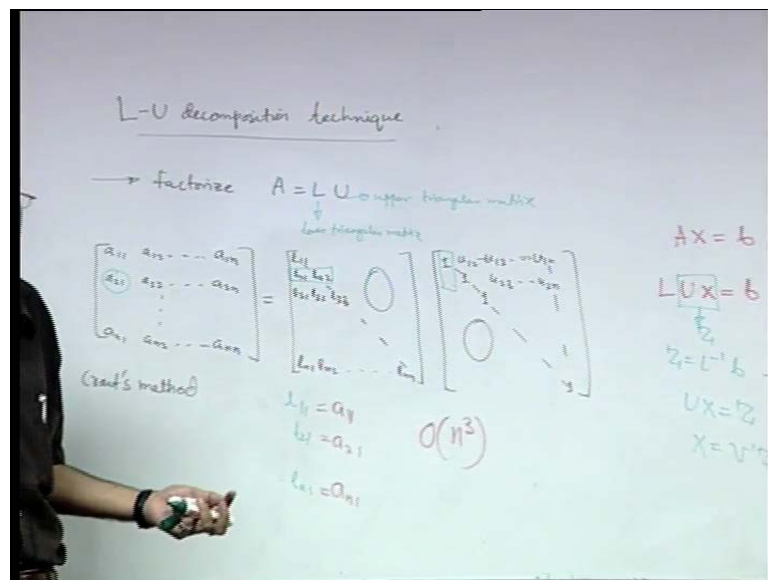 L-U decomposition technique
→ factorize A = L U → upper triangular matrix
lower triangular matrix
a₁₁ a₁₂ ... a₁ₙ
a₂₁ a₂₂ ... a₂ₙ
aₙ₁ aₙ₂ ... aₙₙ
=
l₁₁
l₂₁ l₂₂
l₃₁ l₃₂ l₃₃
lₙ₁ lₙ₂ .... lₙₙ
1 u₁₂ u₁₃ ... u₁ₙ
1 u₂₃ ... u₂ₙ
1
1
Crout's method
l₁₁ = a₁₁
l₂₁ = a₂₁
lₙ₁ = aₙ₁
O(n³)
AX = b
LUX = b
Z
Z = L⁻¹b
UX = Z
X = U⁻¹Z